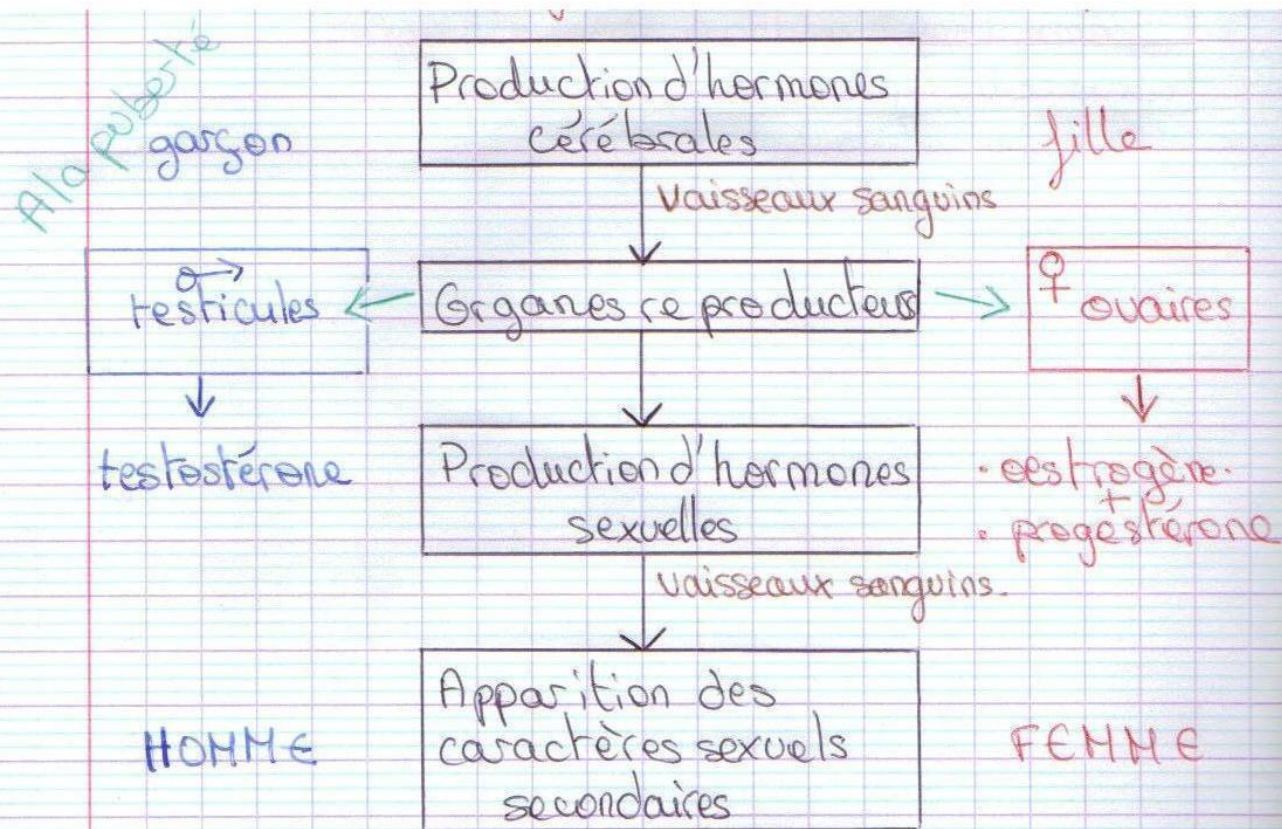 A la puberté
Production d'hormones
cérébrales
garçon
fille
vaisseaux sanguins
testicules
Organes reproducteurs
♀
ovaires
testostérone
Production d'hormones
sexuelles
. oestrogène.
+
. progestérone
vaisseaux sanguins.
HOMME
Apparition des
caractères sexuels
secondaires
FEMME